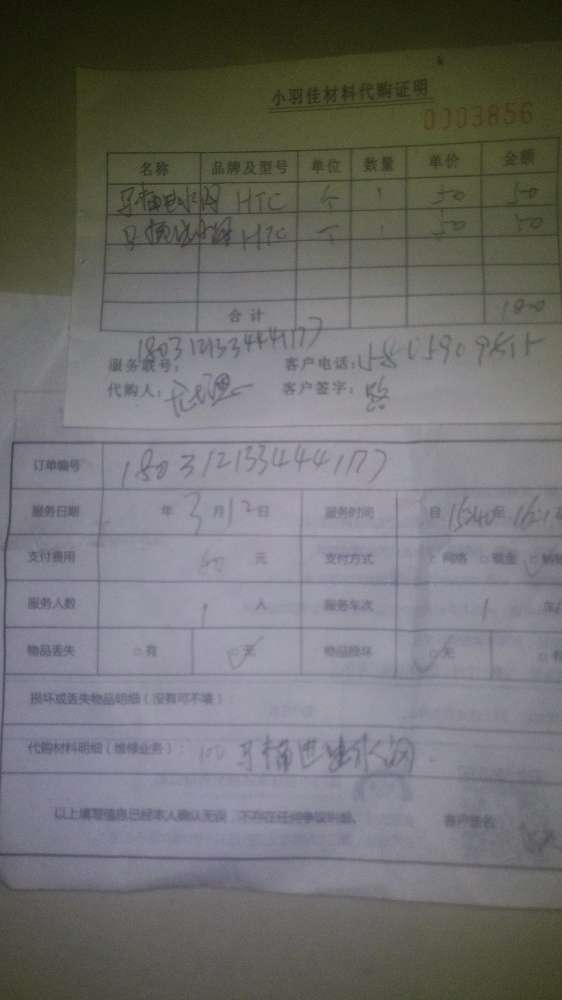 小羽佳材料代购证明
0003856
名称 品牌及型号 单位 数量 单价 金额
马桶进水阀 HTC 个 1 50 50
马桶 HTC 个 1 50 50
合计
服务联号: 180312133444177
客户电话:
代购人: 客户签字:
订单编号 180312133444177
服务日期 年 3 月 12 日 服务时间 自 15:40 至
支付费用 元 支付方式 网络 现金
服务人数 1 人 服务车次 1
物品丢失 有 无 物品损坏 无
损坏或丢失物品明细(没有可不填):
代购材料明细(维修业务): 100 马桶进水阀
以上填写信息已经本人确认无误,不存在任何争议纠纷。 客户签名